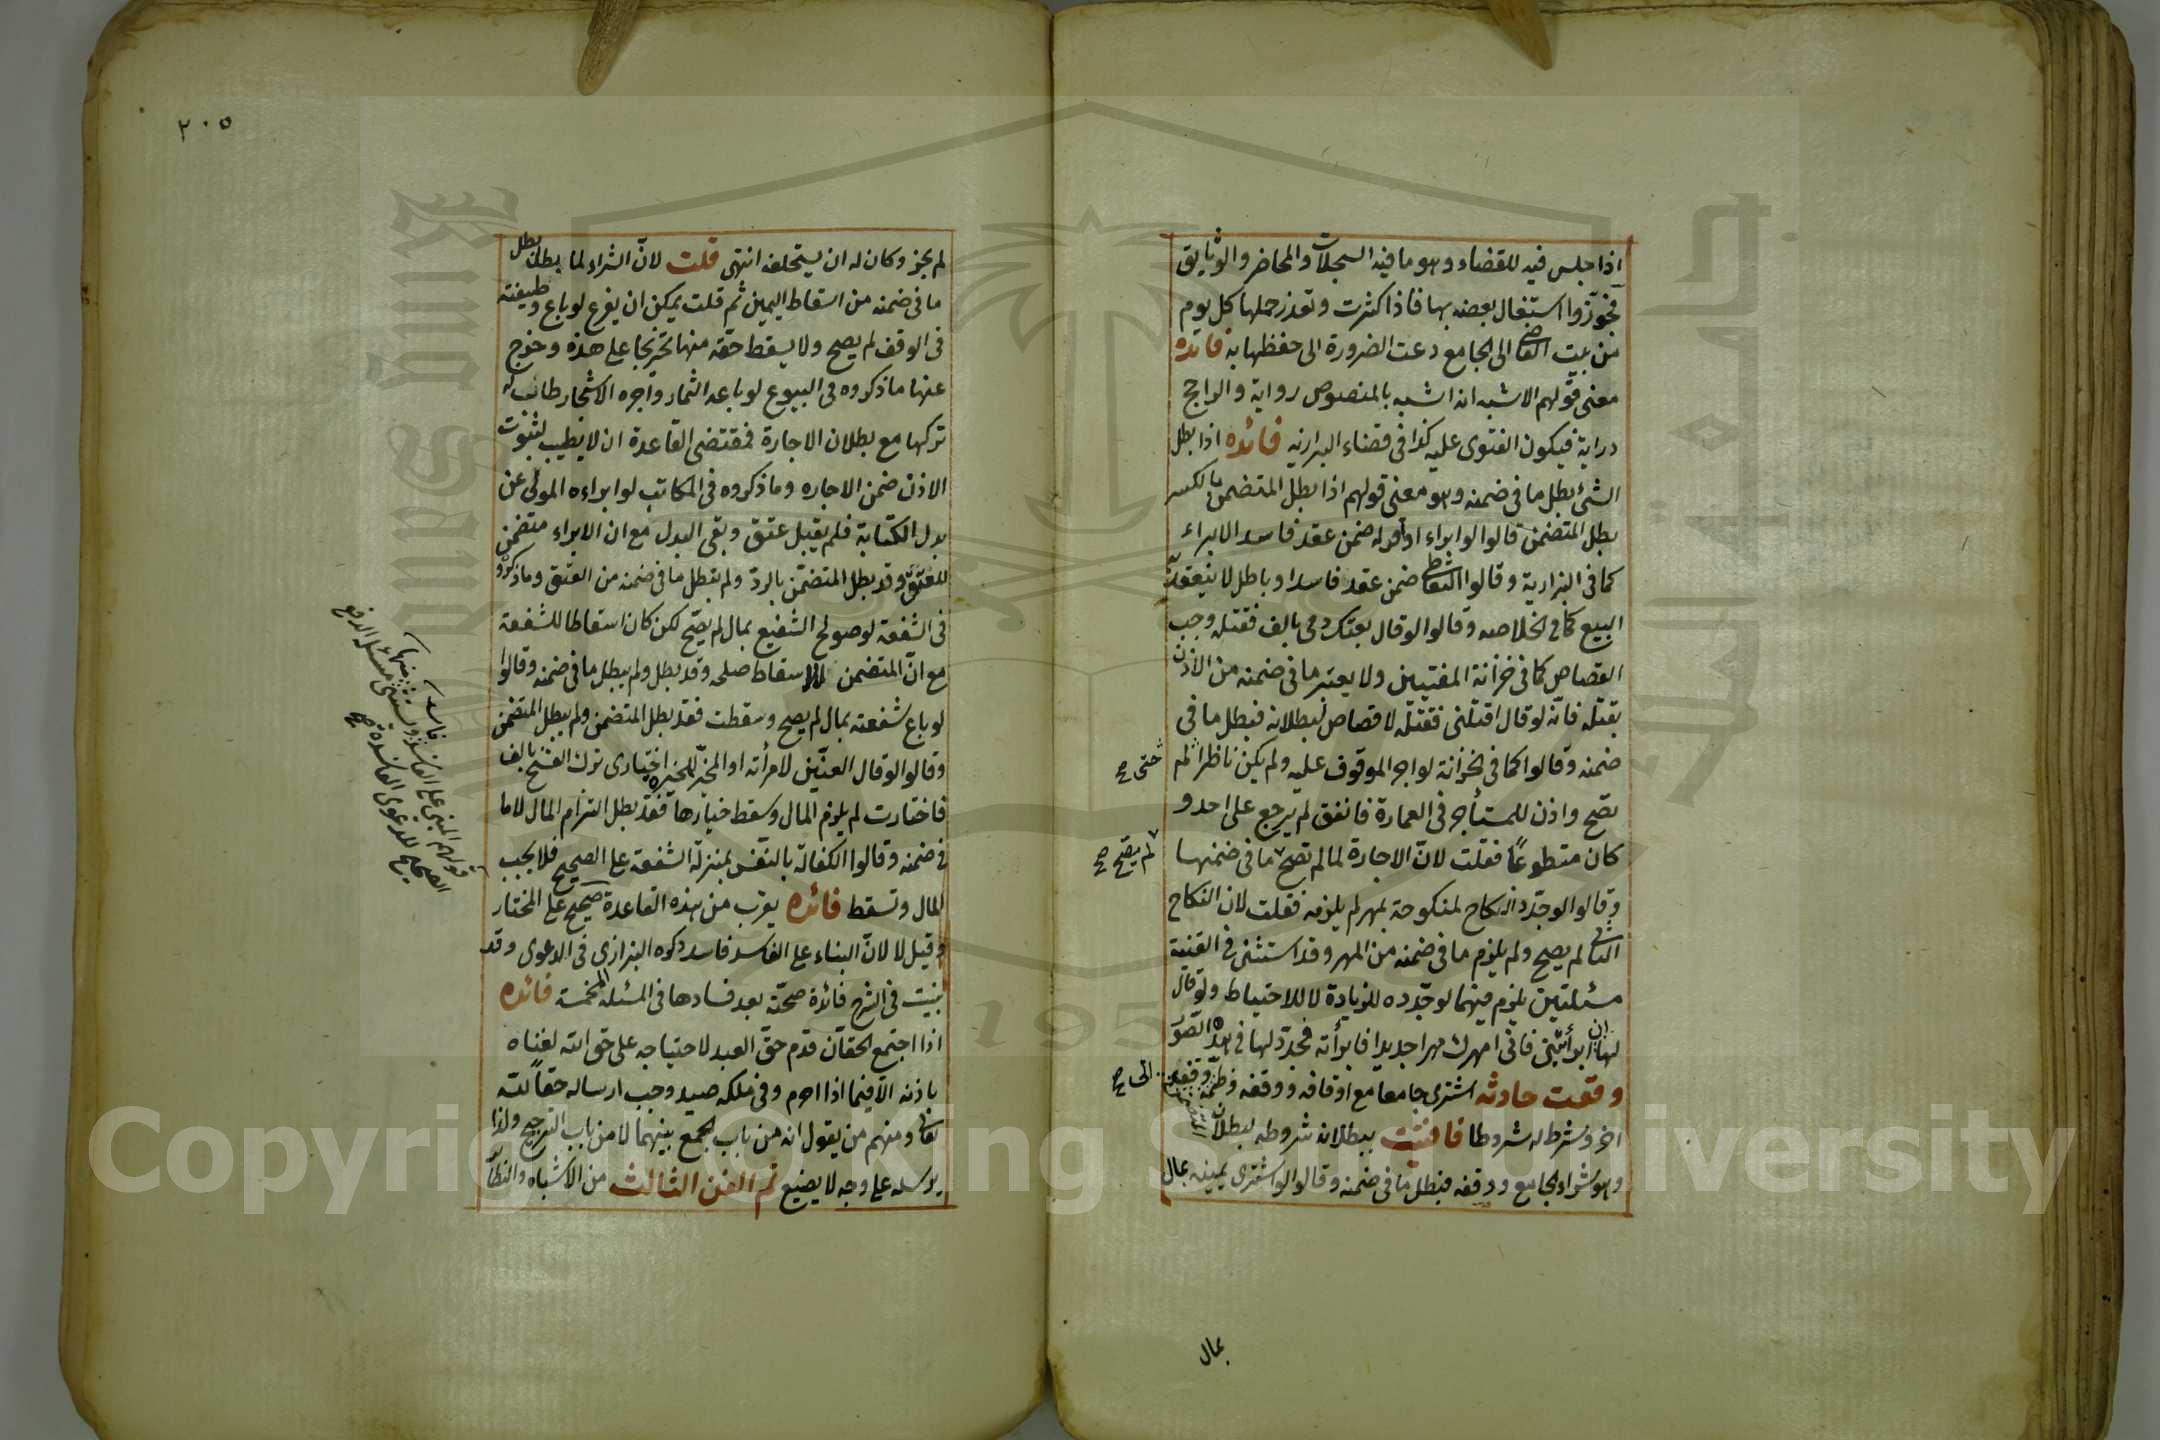 اذا جلس فيه للقضاء وهو ما فيه السجلات والمحاضر والوثايق
فجوّزوا استغال بعضه بها فاذا كثرت وتعذر حملها كل يوم
من بيت القاضى الى الجامع دعت الضرورة الى حفظها به فائده
معنى قولهم الاشبه انه اشبه بالمنصوص رواية والراجح
دراية فيكون الفتوى عليه كذا فى قضاء البزازيه فائده اذا بطل
الشئ بطل ما فى ضمنه وهو معنى قولهم اذا بطل المتضمن بالكسر
بطل المتضمن قالوا لو ابراء او اقر له ضمن عقد فاسد الابراء
كما فى البزازية وقالوا التعاطى ضمن عقد فاسد او باطل لا ينعقد به
البيع كما فى الخلاصه وقالوا لو قال بعتك دمى بالف فقتله وجب
القصاص كما فى خزانة المفتيين ولا يعتبر ما فى ضمنه من الاذن
بقتله فانّه لو قال اقتلنى فقتله لا قصاص لبطلانه فبطل ما فى
ضمنه وقالوا كما فى الخزانة لو اجر الموقوف عليه ولم يكن ناظرا لم
تصح واذن للمستأجر فى العمارة فانفق لم يرجع على احد و
كان متطوعًا فقلت لانّ الاجارة لما لم تصح ما فى ضمنها
وقالوا لو جدّد النكاح لمنكوحة بمهر لم يلزمه فقلت لان النكاح
الثانى لم يصح ولم يلزم ما فى ضمنه من المهر وقد استثنى فى القنية
مسئلتين يلزم فيهما لو جدّده للزيادة لا للاحتياط ولو قال
لها ان ابرأتنى فانى امهرك مهرا جديدا فابرأته فجدّد لها فى هذه الصور
وقعت حادثه اشترى جامعا مع اوقافه ووقفه وضمه وقف
اخر وشرط له شروطا فافتيت ببطلانه شروطه لبطلان
وهو شراء الجامع ووقفه فبطل ما فى ضمنه وقالوا لو اشترى يمينه بمال
حتى صح
لم يصح صح
الى صح
بمال
٢٠٥
لم يجز وكان له ان يستحلفه انتهى قلت لانّ الشراء لما بطل بطل
ما فى ضمنه من اسقاط اليمين ثم قلت يمكن ان يفرع لو باع وظيفته
فى الوقف لم يصح ولا يسقط حقه منها تخريجا على هذه وخرج
عنها ما ذكروه فى البيوع لو باعه الثمار واجره الاشجار طاب له
تركها مع بطلان الاجارة فمقتضى القاعدة ان لا يطيب لثبوت
الاذن ضمن الاجاره وما ذكروه فى المكاتب لو ابراءه المولى عن
بدل الكتابة فلم يقبل عتق وبقى البدل مع ان الابراء متضمن
للعتق وقد بطل المتضمّن بالردّ ولم يبطل ما فى ضمنه من العتق وما ذكروه
فى الشفعة لو صولح الشفيع بمال لم يصّح لكن كان اسقاطا للشفعة
مع انّ المتضمن للاسقاط صلحه وقد بطل ولم يبطل ما فى ضمنه وقالوا
لو باع شفعته بمال لم يصح وسقطت فقد بطل المتضمن ولم يبطل المتضمن
وقالوا لو قال العنّين لامرأته او المخيّر للمخيره اختيارى ترك الفسخ بالف
فاختارت لم يلزم المال وسقط خيارها فقد بطل التزام المال لا ما
فى ضمنه وقالوا الكفالة بالنّفس بمنزلة الشفعة على الصحيح فلا يجب
المال وتسقط فائده يقرب من هذه القاعدة صحيح على المختار
وقيل لا لانّ البناء على الفاسد فاسد ذكره البزازى فى الدعوى وقد
بنيت فى الشرح فائدة صحته بعد فسادها فى المسئلة المخمسة فائده
اذا اجتمع الحقان قدم حقّ العبد لاحتياجه على حق الله لغناه
باذنه الّا فيما اذا احرم وفى ملكه صيد وجب ارساله حقًا لله
تعالى ومنهم من يقول انه من باب الجمع بينهما لا من باب الترجيح ولذا
يرسله على وجه لا يضيع تم الفن الثالث من الاشباه والنظائر
قولهم المبنى على الفاسد
فاسد ويستثنى منها
مسئلة الدفع
الصحيح للدعوى الفاسدة صح
Copyright © King Saud University